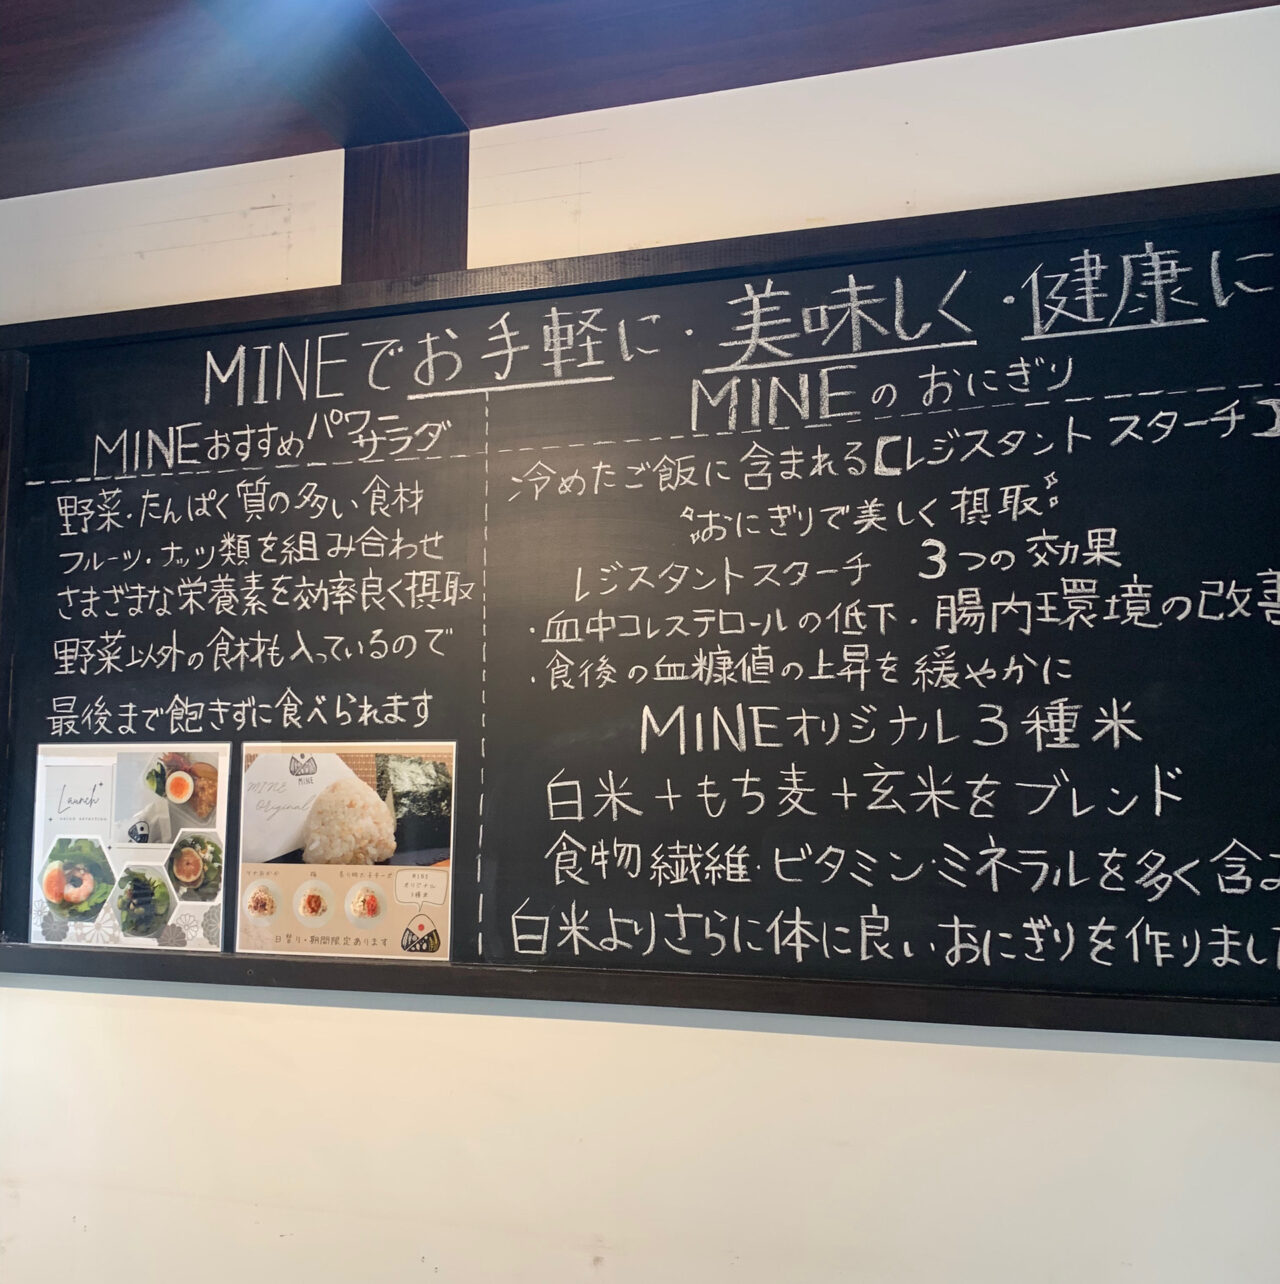 MINEでお手軽に・美味しく・健康に
MINEおすすめパワーサラダ
野菜・たんぱく質の多い食材
フルーツ・ナッツ類を組み合わせ
さまざまな栄養素を効率良く摂取
野菜以外の食材も入っているので
最後まで飽きずに食べられます
MINEのおにぎり
冷めたご飯に含まれる【レジスタントスターチ】
おにぎりで美しく摂取
レジスタントスターチ 3つの効果
・血中コレステロールの低下・腸内環境の改善
・食後の血糖値の上昇を緩やかに
MINEオリジナル3種米
白米+もち麦+玄米をブレンド
食物繊維・ビタミン・ミネラルを多く含み
白米よりさらに体に良いおにぎりを作りまし
Launch
MINE
MINE
Original
ツナおかか 梅
MINE
オリジナル
3種米
日替り・期間限定あります